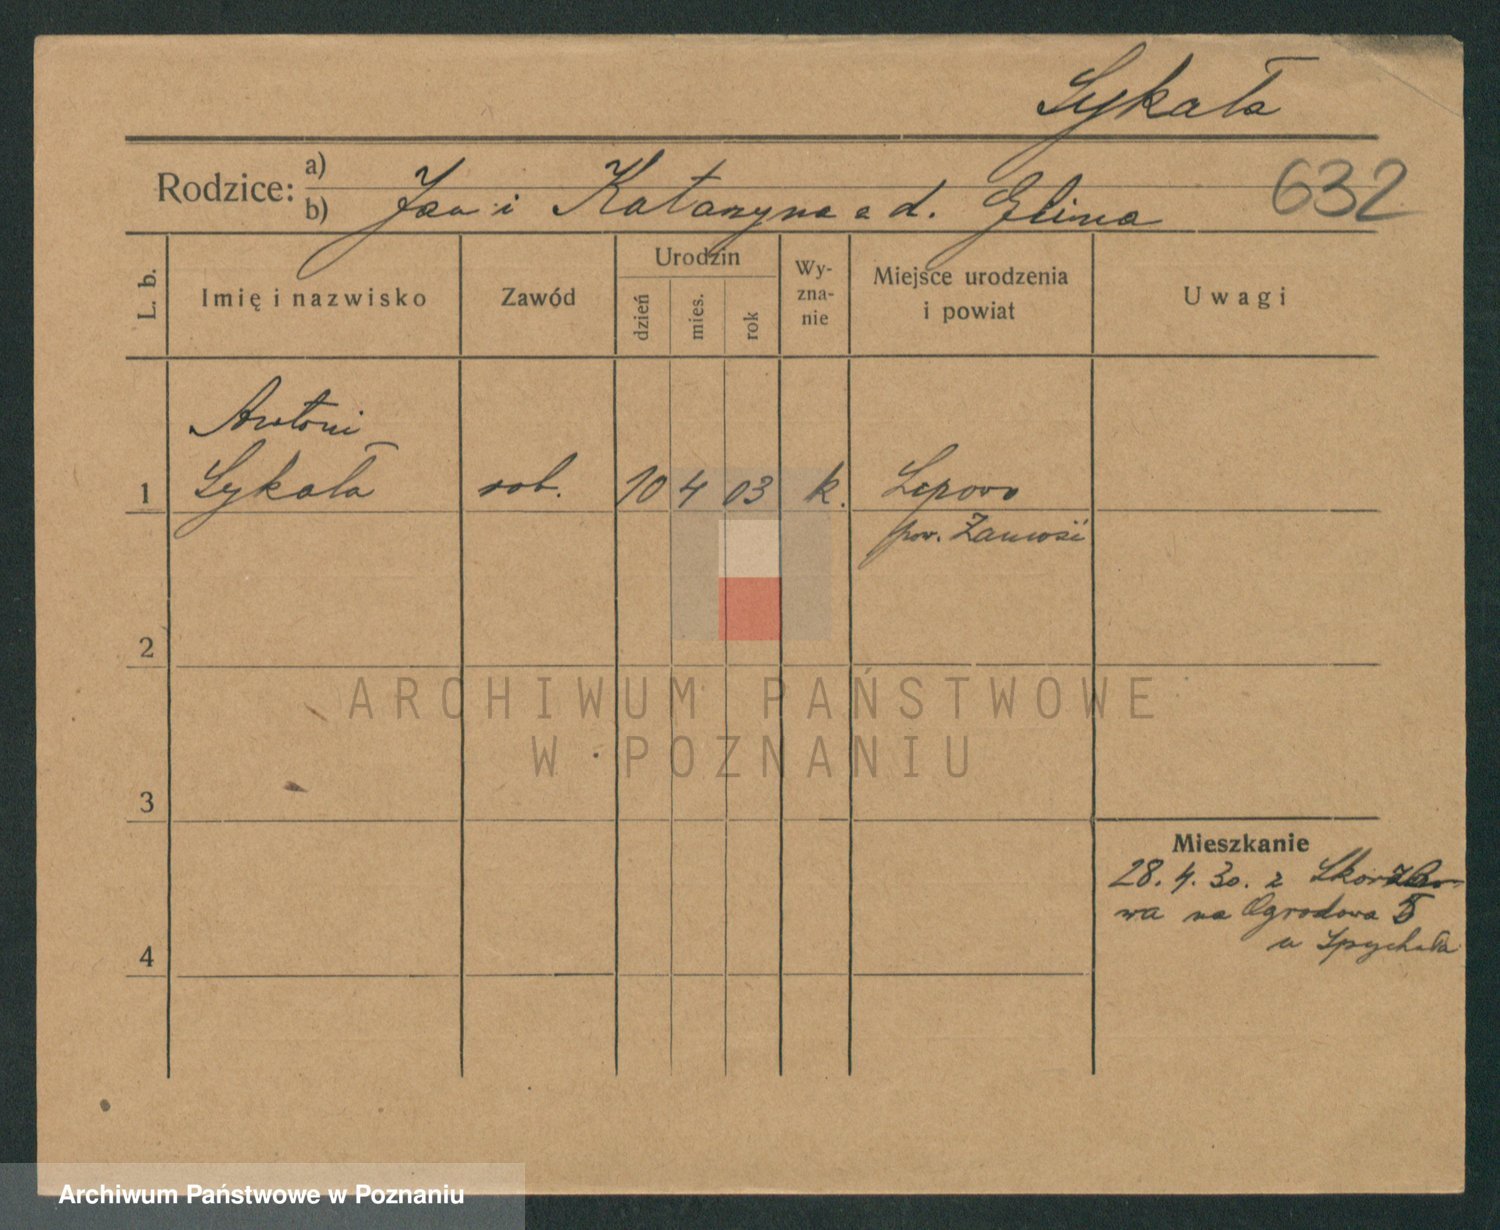 Sykała
Rodzice: a)
b) Jan i Katarzyna z d. Glina
632
L. b.
Imię i nazwisko
Zawód
Urodzin
dzień
mies.
rok
Wy-
zna-
nie
Miejsce urodzenia
i powiat
Uwagi
Antoni
1 Sykała rob. 10 4 03 k. Lipowo
pow. Zamość
2
ARCHIWUM PAŃSTWOWE
W POZNANIU
3
Mieszkanie
28.4.30. z
wa na Ogrodowa 5
4
u Spychała
Archiwum Państwowe w Poznaniu